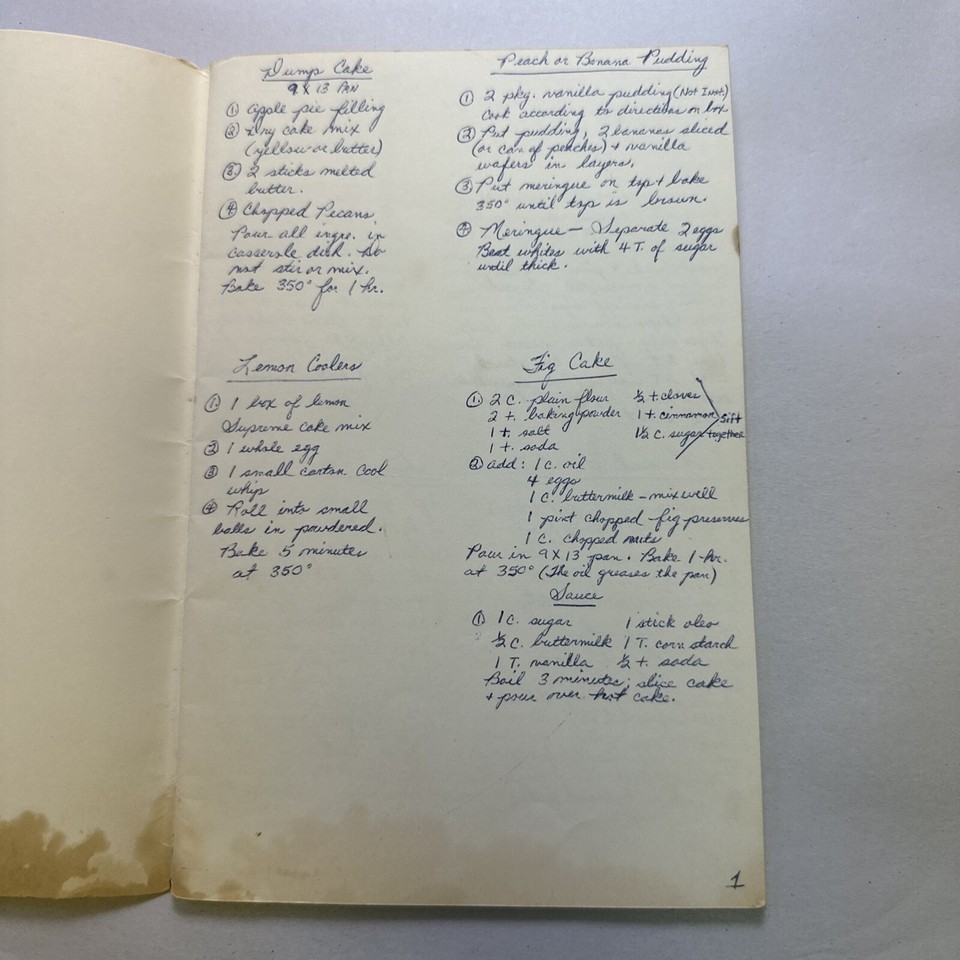 Dump Cake
9 X 13 PAN
① apple pie filling
② Dry cake mix
(yellow or butter)
③ 2 sticks melted
butter.
④ Chopped Pecans
Pour all ingre. in
casserole dish. Do
not stir or mix.
Bake 350° for 1 hr.
Peach or Banana Pudding
① 2 pkg. vanilla pudding (Not Inst.)
Cook according to directions on box
② Put pudding, 2 bananas sliced
(or can of peaches) + vanilla
wafers in layers.
③ Put meringue on top + bake
350° until top is brown.
④ Meringue — Separate 2 eggs
Beat whites with 4 T. of sugar
until thick.
Lemon Coolers
① 1 box of lemon
Supreme cake mix
② 1 whole egg
③ 1 small carton Cool
whip
④ Roll into small
balls in powdered.
Bake 5 minutes
at 350°
Fig Cake
① 2 C. plain flour ½ t cloves
2 t. baking powder 1 t. cinnamon Sift
1 t. salt 1½ C. sugar together
1 t. soda
② add: 1 C. oil
4 eggs
1 C. buttermilk – mix well
1 pint chopped fig preserves
1 C. chopped nuts
Pour in 9X13 pan. Bake 1-hr.
at 350° (The oil greases the pan)
Sauce
① 1 C. sugar 1 stick oleo
½ C. buttermilk 1 T. corn starch
1 T. vanilla ½ t. soda
Boil 3 minutes; slice cake
+ pour over hot cake.
1